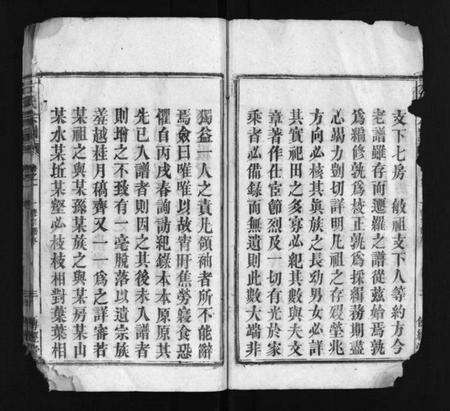 支下七房 敏祖支下人等約方今
老譜雖存而遷羅之譜從茲給焉孰
為纘修孰為校正孰為採緝務期盡
心竭力剴切詳明凡祖之存歿塋兆
方向必核其眞族之長幼男女必詳
其實祀田之多寡必紀其數與夫文
章著作仕宦節烈及一切有光於家
乘者必備錄而無遺則此數大端非
獨益一人之責凡領袖者所不能辭
焉僉曰唯唯以故宵旰焦勞寢食恐
懼自丙戌春諭訪紀錄本本原原其
先已入譜者則因之其後未入譜者
則增之不致有一毫脫落以遺宗族
羞越桂月稿齊又一一為之詳審若
某祖之與某豫某族之與某房某山
某水某坵某壑必枝枝相對葉葉相